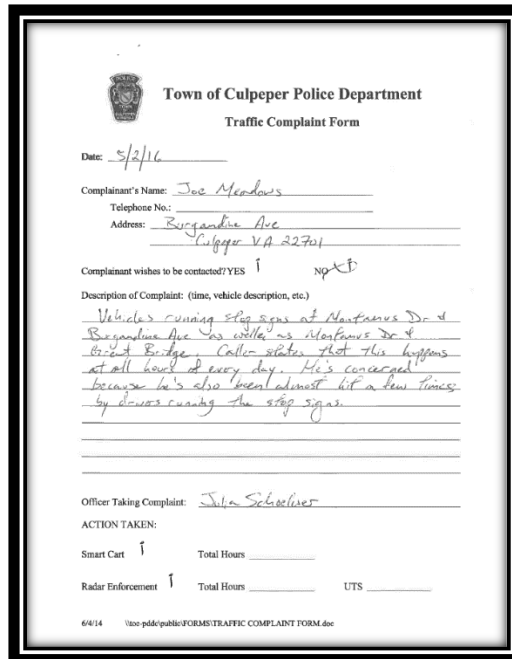 Town of Culpeper Police Department
Traffic Complaint Form
Date: 5/2/16
Complainant's Name: Joe Meadows
Telephone No.:
Address: Burgandine Ave
Culpeper VA 22701
Complainant wishes to be contacted? YES NO
Description of Complaint: (time, vehicle description, etc.)
Vehicles running stop signs at Dr &
Burgandine Ave as as Dr &
Bridge. Caller states that this happens
at all hours of every day. He's concerned
because he's also been almost hit a few times
by running the stop signs.
Officer Taking Complaint: Julia
ACTION TAKEN:
Smart Cart Total Hours
Radar Enforcement Total Hours UTS
6/4/14 \\toc-pddc\public\FORMS\TRAFFIC COMPLAINT FORM.doc